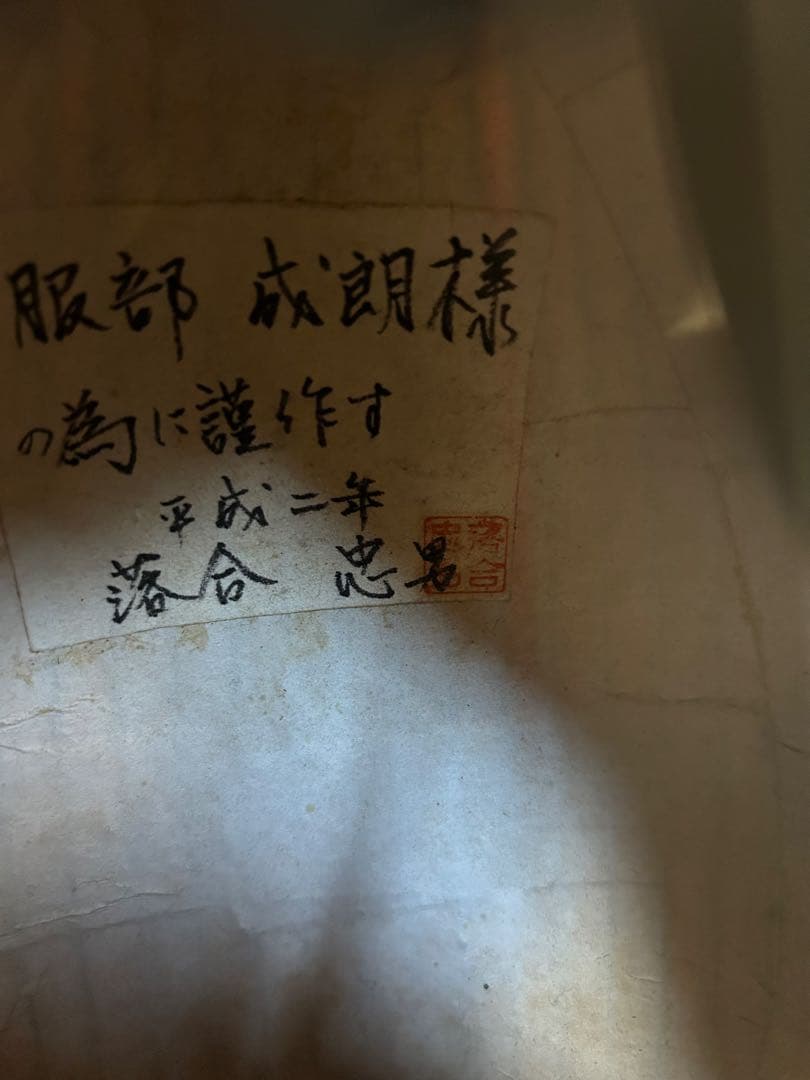 服部 成朗様
の為に謹作す
平成二年
落合 忠男
落合
忠男